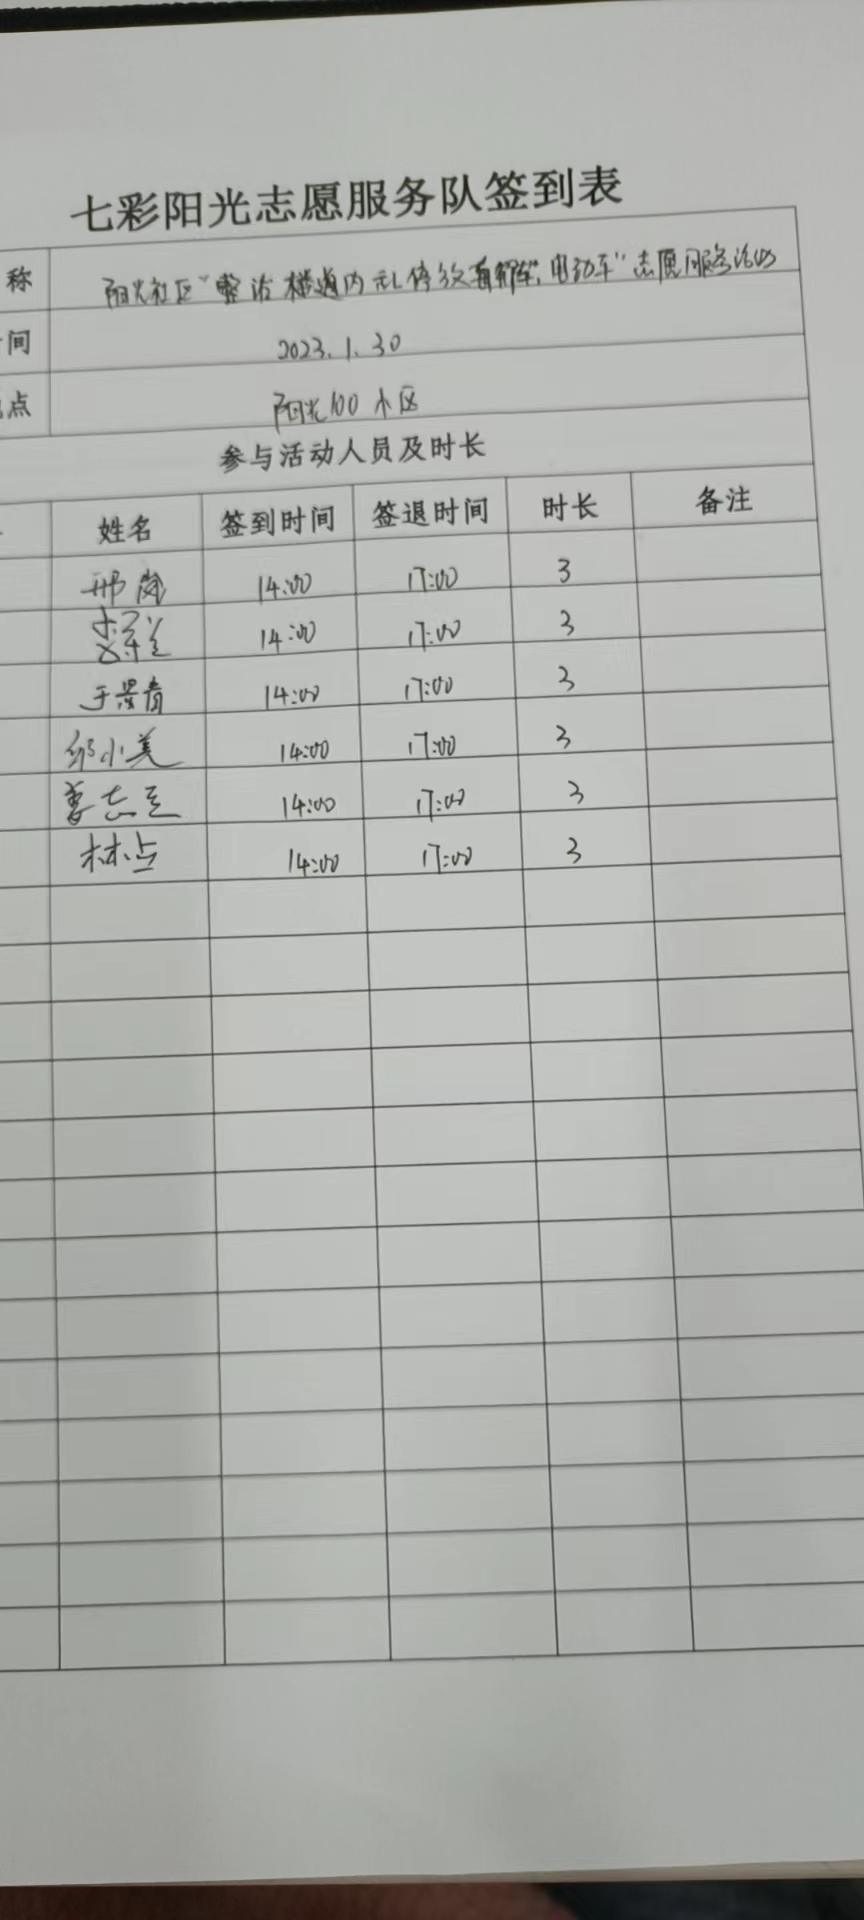 七彩阳光志愿服务队签到表
称 阳光社区“整治楼道内乱停放自行车,电动车”志愿服务活动
间 2023.1.30
点 阳光100小区
参与活动人员及时长
姓名 签到时间 签退时间 时长 备注
邢岚 14:00 17:00 3
14:00 17:00 3
于景青 14:00 17:00 3
邹小美 14:00 17:00 3
14:00 17:00 3
林 14:00 17:00 3